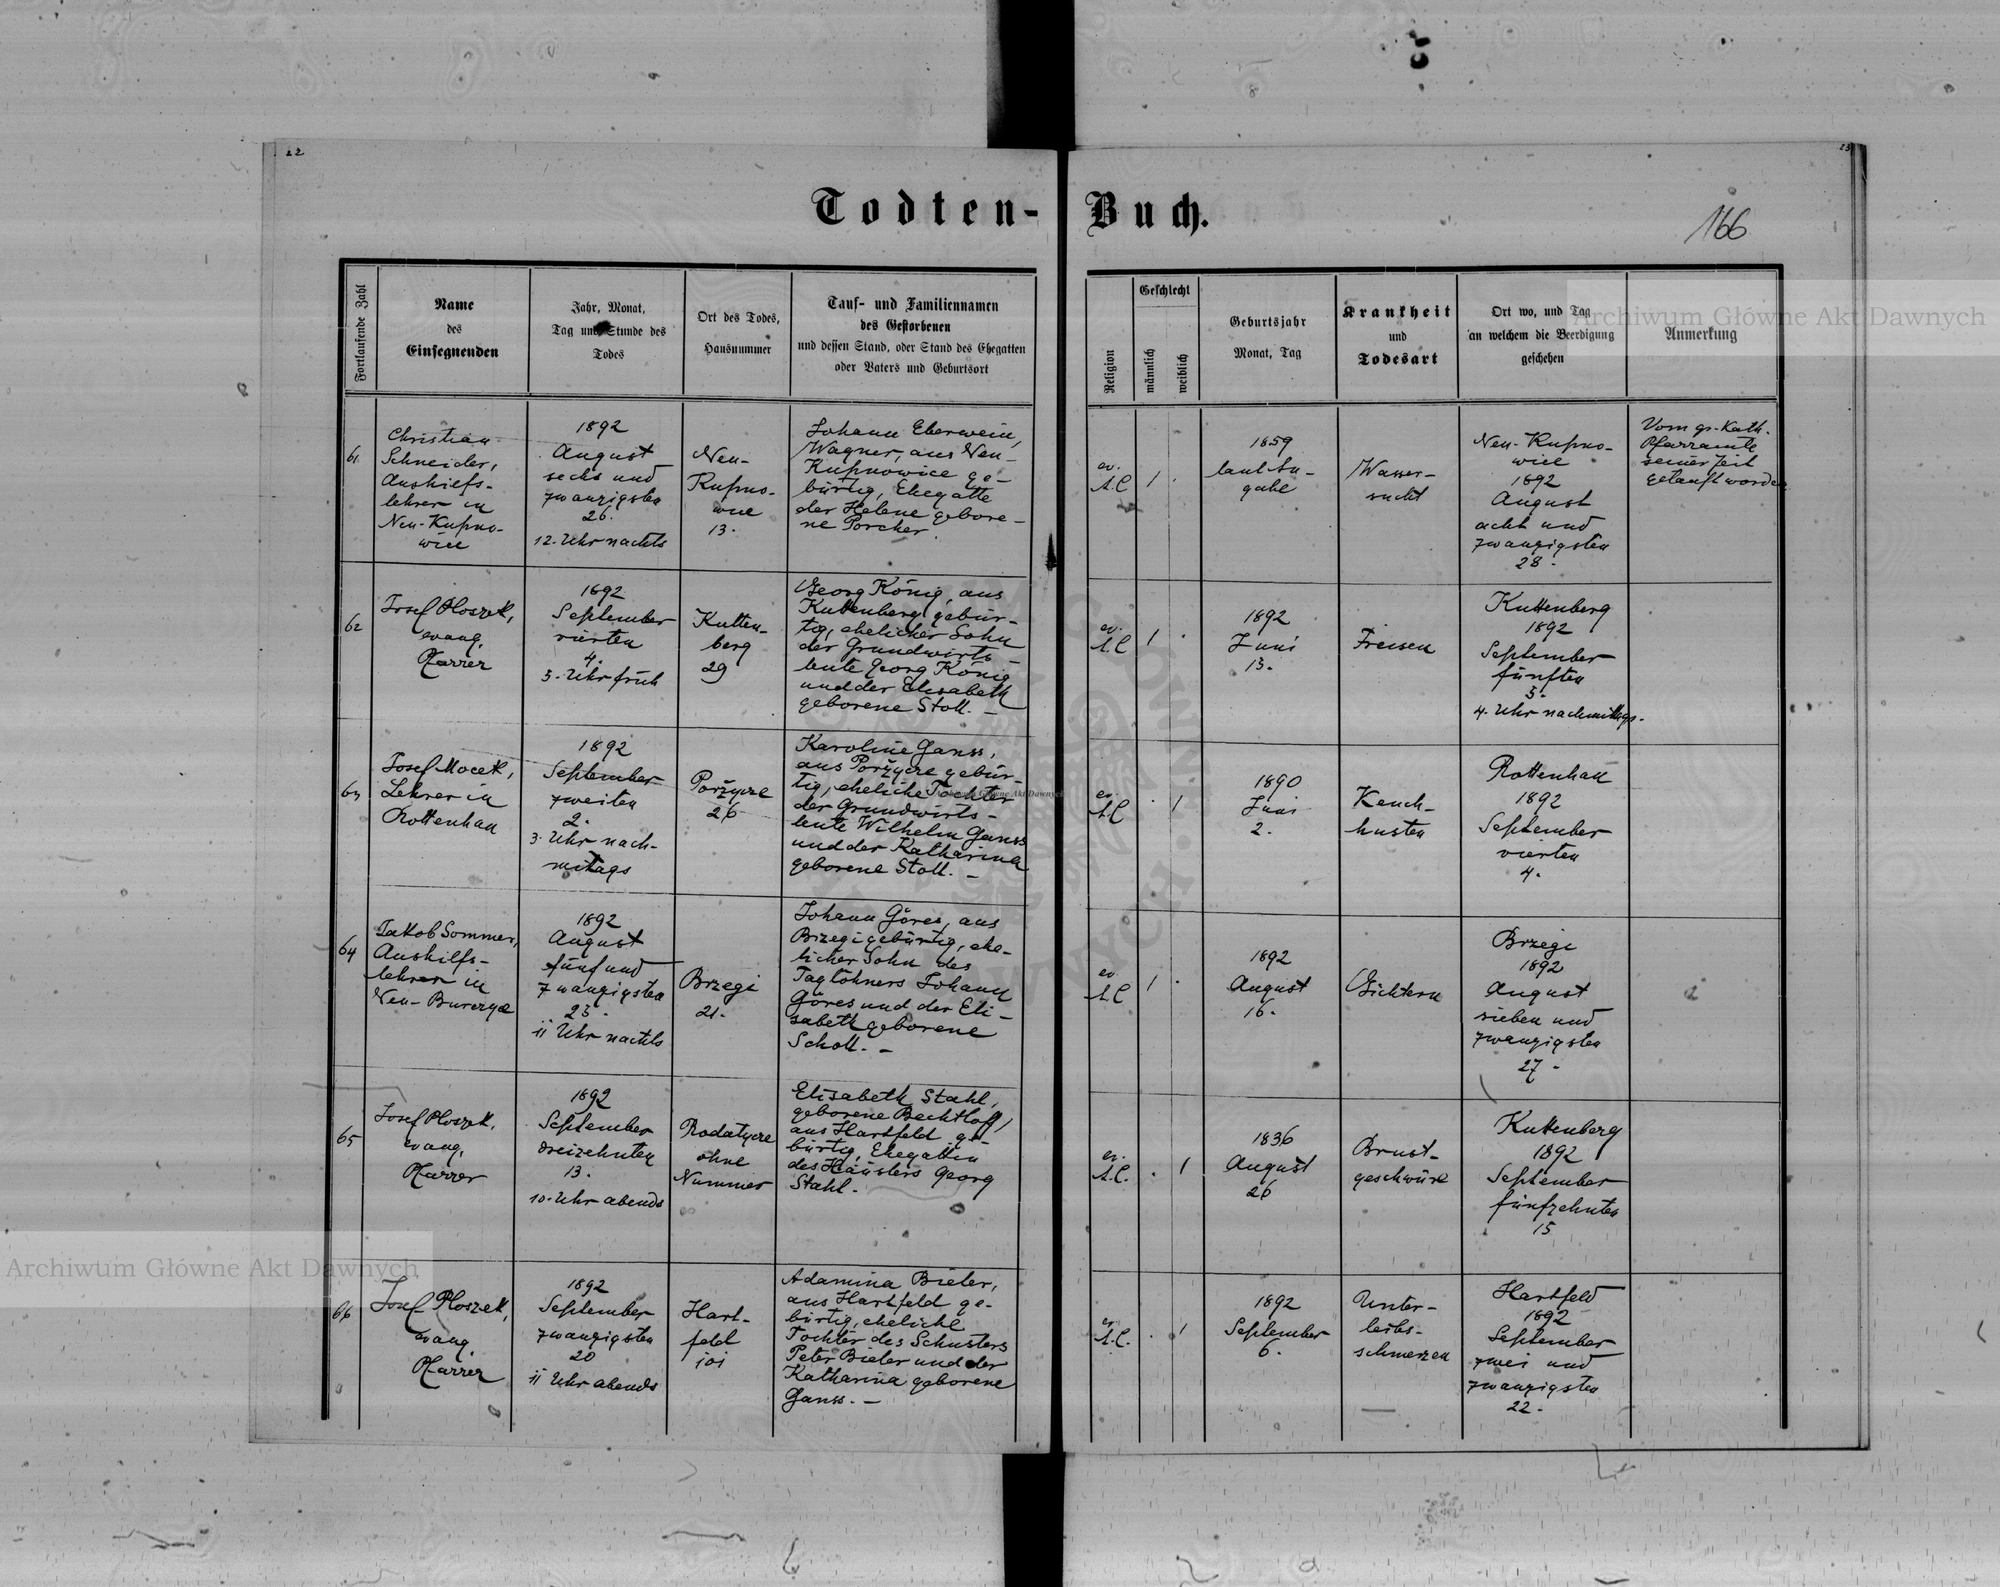 22
23
Todten-Buch.
166
Fortlaufende Zahl
Name
des
Einsegnenden
Jahr, Monat,
Tag und Stunde des
Todes
Ort des Todes,
Hausnummer
Tauf- und Familiennamen
des Gestorbenen
und dessen Stand, oder Stand des Ehegatten
oder Vaters und Geburtsort
Religion
Geschlecht
männlich
weiblich
Geburtsjahr
Monat, Tag
Krankheit
und
Todesart
Ort wo, und Tag
an welchem die Beerdigung
geschehen
Anmerkung
Archiwum Główne Akt Dawnych
61.
Christian
Schneider,
Aushilfs-
lehrer in
Neu-Kupno-
wice
1892
August
sechs und
zwanzigsten
26.
12. Uhr nachts
Neu-
Kupno-
wice
13.
Johann Eberwein,
Wagner, aus Neu-
Kupnowice ge-
bürtig, Ehegatte
der Helene gebore-
ne Porcher.
ev.
A.C
1
.
1859
laut An-
gabe
Wasser-
sucht
Neu-Kupno-
wice
1892
August
acht und
zwanzigsten
28.
Vom gr.-Kath.
Pfarramte
seiner Zeit
getauft worden
62
Josef Ploszek,
evang.
Pfarrer
1892
September
vierten
4.
3. Uhr früh
Kutten-
berg
29
Georg König, aus
Kuttenberg gebür-
tig, ehelicher Sohn
der Grundwirts-
leute Georg König
und der Elisabeth
geborene Stoll. -
ev.
A.C
1
.
1892
Juni
13.
Freisen
Kuttenberg
1892
September
fünften
5.
4. Uhr nachmittags.
63
Josef Mocek,
Lehrer in
Rottenhan
1892
September
zweiten
2.
3. Uhr nach-
mittags
Poržycze
26
Karoline Ganss,
aus Poržycze gebür-
tig, eheliche Tochter
der Grundwirts-
leute Wilhelm Ganss
und der Katharina
geborene Stoll. -
ev.
A.C
.
1
1890
Juni
2.
Keuch-
husten
Rottenhan
1892
September
vierten
4.
64
Jakob Sommer,
Aushilfs-
lehrer in
Neu-Burczyce
1892
August
fünf und
zwanzigsten
25.
11 Uhr nachts
Brzegi
21.
Johann Göres, aus
Brzegi gebürtig, ehe-
licher Sohn des
Taglöhners Johann
Göres und der Eli-
sabeth geborene
Scholl. -
ev.
A.C
1
.
1892
August
16.
Gichtern
Brzegi
1892
August
sieben und
zwanzigsten
27.
65
Josef Ploszek,
evang.
Pfarrer
1892
September
dreizehnten
13.
10. Uhr abends
Rodatycze
ohne
Nummer
Elisabeth Stahl,
geborene Bechtloff,
aus Hartfeld ge-
bürtig, Ehegattin
des Häuslers Georg
Stahl.
ev.
A.C.
.
1
1836
August
26
Brust-
geschwüre
Kuttenberg
1892
September
fünfzehnten
15
66
Josef Ploszek,
evang.
Pfarrer
1892
September
zwanzigsten
20
11 Uhr abends
Hart-
feld
101
Adamina Bieler,
aus Hartfeld ge-
bürtig, eheliche
Tochter des Schusters
Peter Bieler und der
Katharina geborene
Ganss. -
ev
A.C.
.
1
1892
September
6.
Unter-
leibs-
schmerzen
Hartfeld
1892
September
zwei und
zwanzigsten
22.
Archiwum Główne Akt Dawnych
Archiwum Główne Akt Dawnych